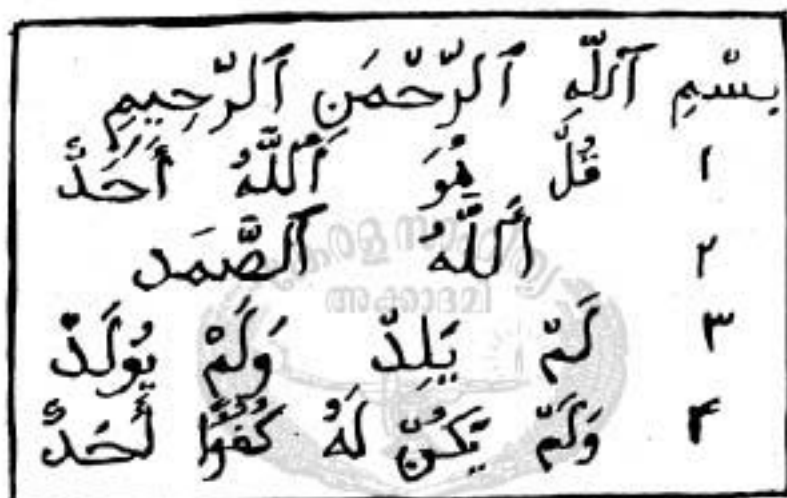 بِسْمِ ٱللّٰهِ ٱلرَّحْمَنِ ٱلرَّحِيمِ
١ قُلْ هُوَ ٱللَّهُ أَحَدٌ
٢ أَللَّهُ ٱلصَّمَد
٣ لَمْ يَلِدْ وَلَمْ يُولَدْ
۴ وَلَمْ يَكُنْ لَهُ كُفُوًا أَحَدٌ
കേരള സാഹിത്യ
അക്കാദമി